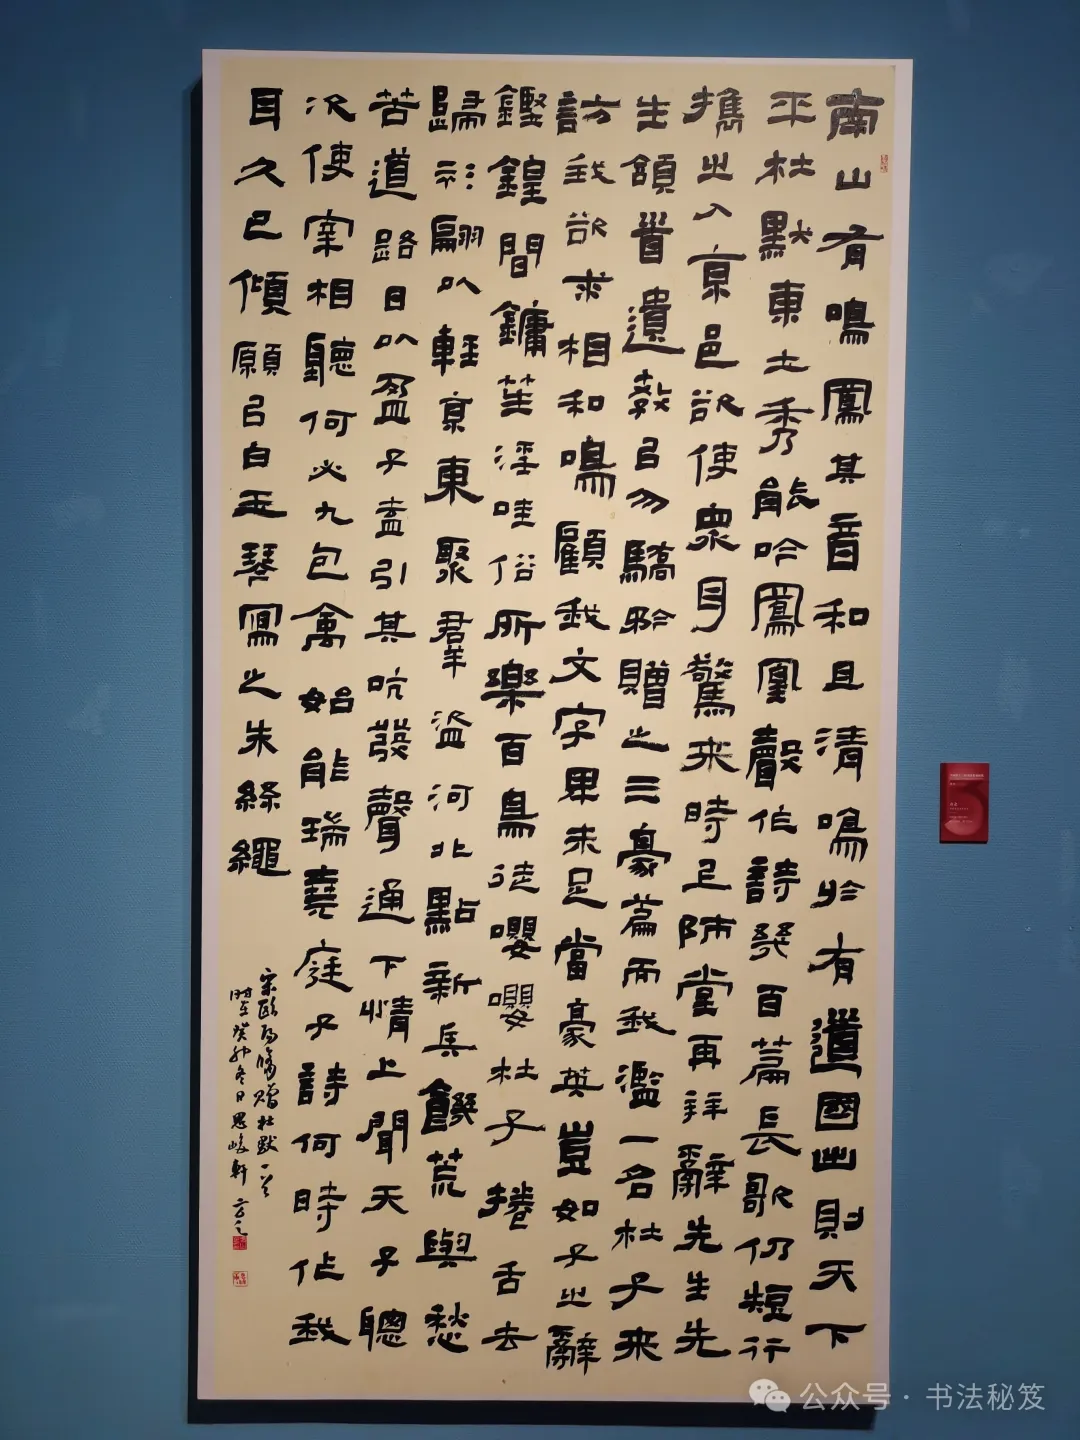 南山有鳴鳳其音和且清鳴於有道國出則天下
平杜默東土秀能吟鳳凰聲作詩幾百篇長歌仍短行
攜之入京邑欲使衆耳驚來時上師堂再拜辭先生先
生頷首遣教以勿驕矜贈之三豪篇而我濫一名杜子來
訪我欲求相和鳴顧我文字卑未足當豪英豈如子之辭
鏗鍠間鏞笙淫哇俗所樂百鳥徒嚶嚶杜子捲舌去
歸衫翩以輕京東聚群盜河北點新兵饑荒與愁
苦道路日以盈子盍引其吭發聲通下情上聞天子聰
次使宰相聽何必九包禽始能瑞堯庭子詩何時作我
耳久已傾願以白玉琴寫之朱絲繩
宋歐陽脩贈杜默一首
時在癸卯冬日思峻軒
公众号·书法秘笈